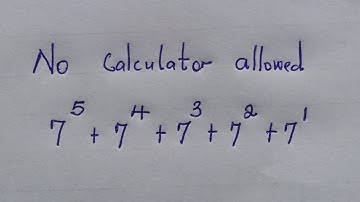 No Calculator allowed
7⁵ + 7⁴ + 7³ + 7² + 7¹